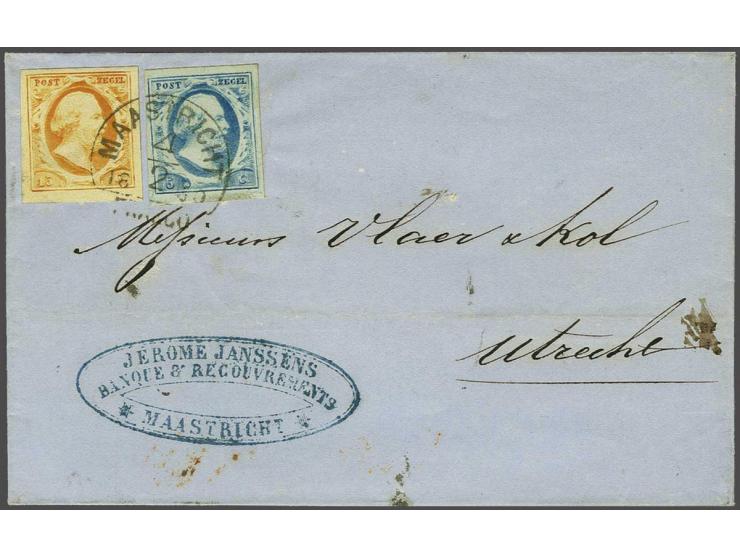 POST ZEGEL
15
POST ZEGEL
5 C.
MAASTRICHT
2/4
18
FRANCO
Messieurs Vlaer & Kol
Utrecht
JEROME JANSSENS
BANQUE & RECOUVREMENTS
* MAASTRICHT *